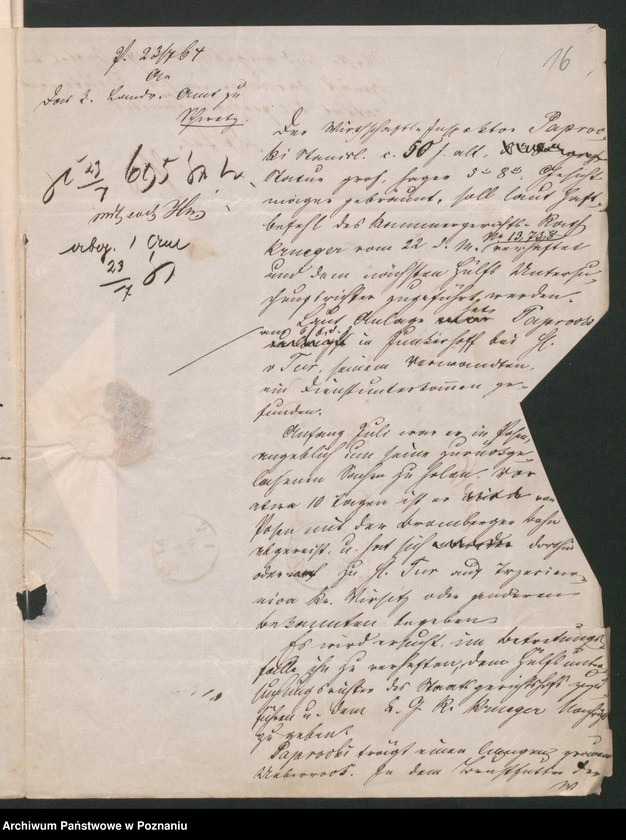 16
23/7 64
An
Das k. Landr. Amt zu
Schwetz.
23/7
23/7
Der Wirthschafts-Inspektor Paproc-
ki Standl. c. 50 J. alt,
Statur groß, hager 5' 8", Gesicht
mager gebräunt, soll laut Haft-
befehl des Kammergerichts-Rath
Krueger vom 22 d. M. No 13,738 verhaftet
und dem nächsten Hülfs Untersu-
chungsrichter zugeführt werden.
Laut Anlage hat Paprocki
in Junkerhoff bei H.
v Tur, seinem Verwandten,
ein Dienstunterkommen ge-
funden.
Anfang Juli war er in Posen,
angeblich um seine zurückge-
lassenen Sachen zu holen. Vor
etwa 10 Tagen ist er von
Posen mit der Bromberger Bahn
abgereist, u. hat sich dorthin
oder zu H. Tur auf
Kr. Wirsitz oder anderen
Bekannten begeben.
Es wird ersucht, im Betretungs-
falle ihn zu verhaften, dem Hülfsunter-
suchungsrichter des Staatsgerichtshofs zuzu-
führen u. dem K. G. R. Krueger Nachricht
zu geben.
Paprocki trägt einen
Ueberrock. In dem
Archiwum Państwowe w Poznaniu